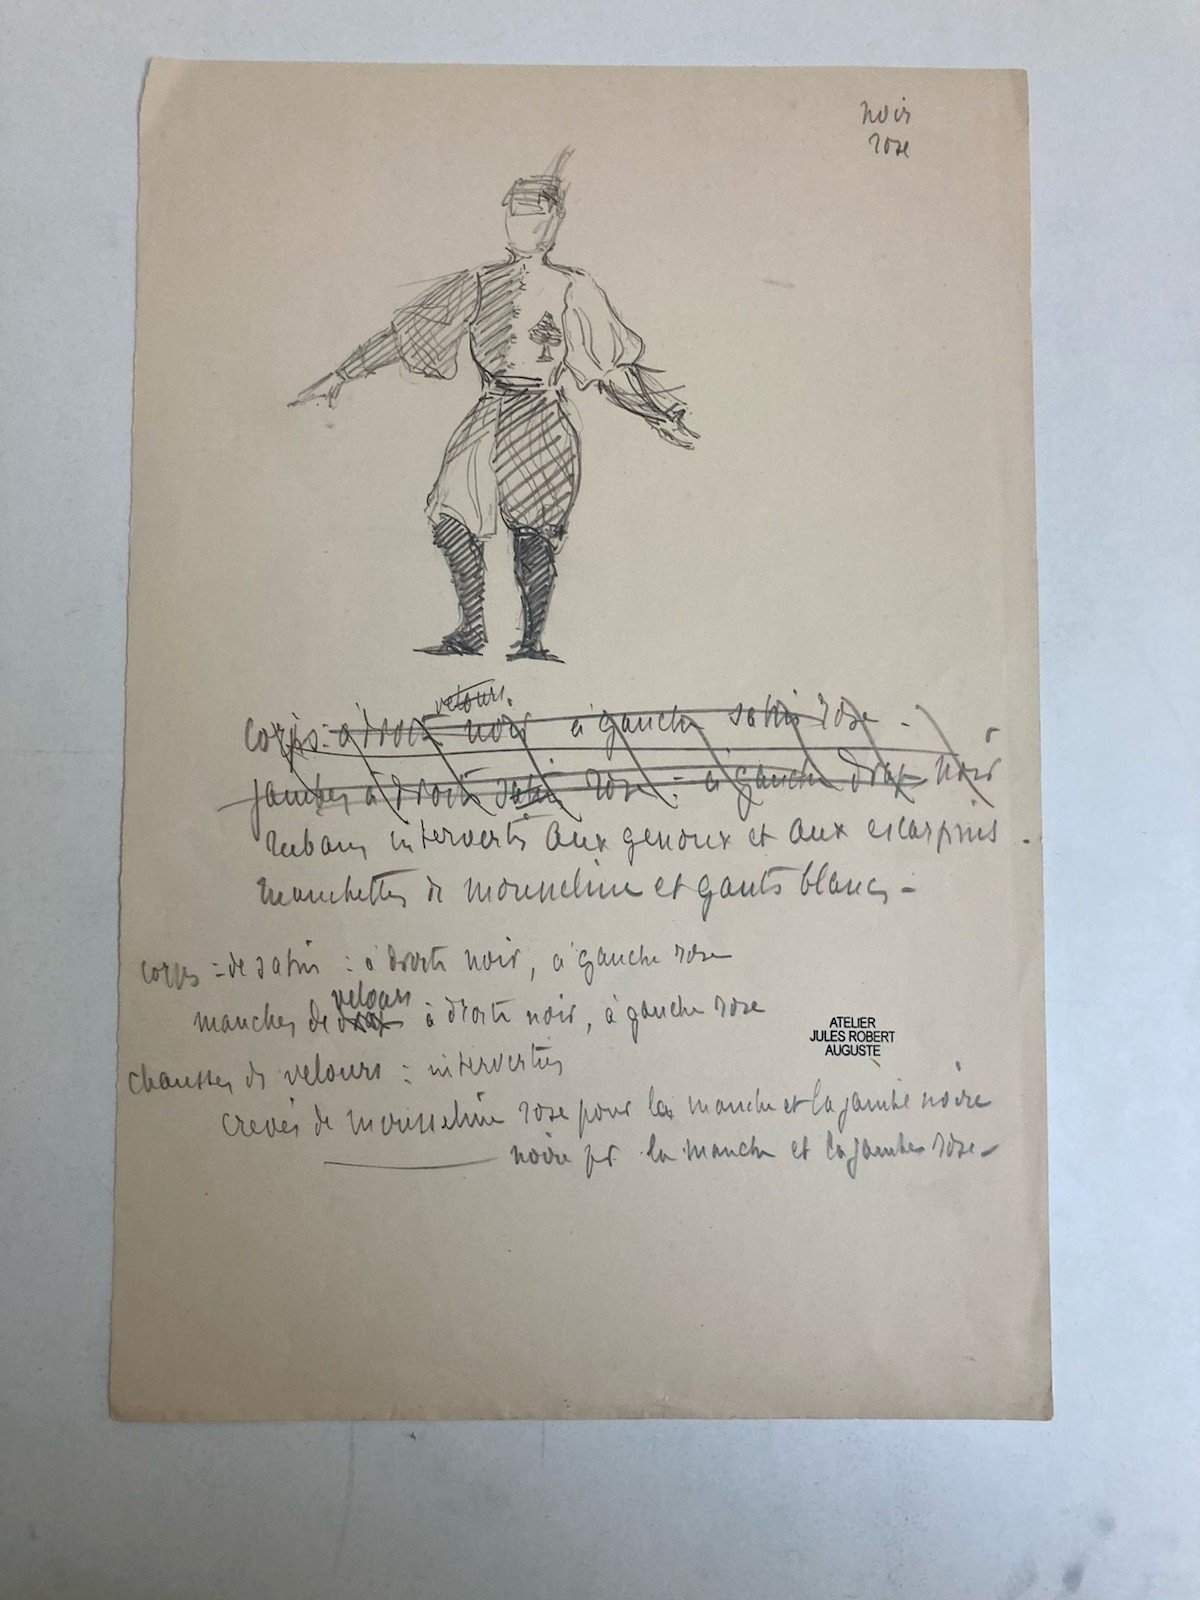 noir
rose
velours
corps : à droite noir à gauche satin rose -
jambes à droite satin rose : à gauche drap noir
rubans intervertis aux genoux et aux escarpins.
manchettes de mousseline et gants blancs -
corps = de satin : à droite noir, à gauche rose
velours
manches de drap à droite noir, à gauche rose
ATELIER
JULES ROBERT
AUGUSTE
chausses de velours : interverties
crevés de mousseline rose pour la manche et la jambe noire
noire pr la manche et la jambe rose -